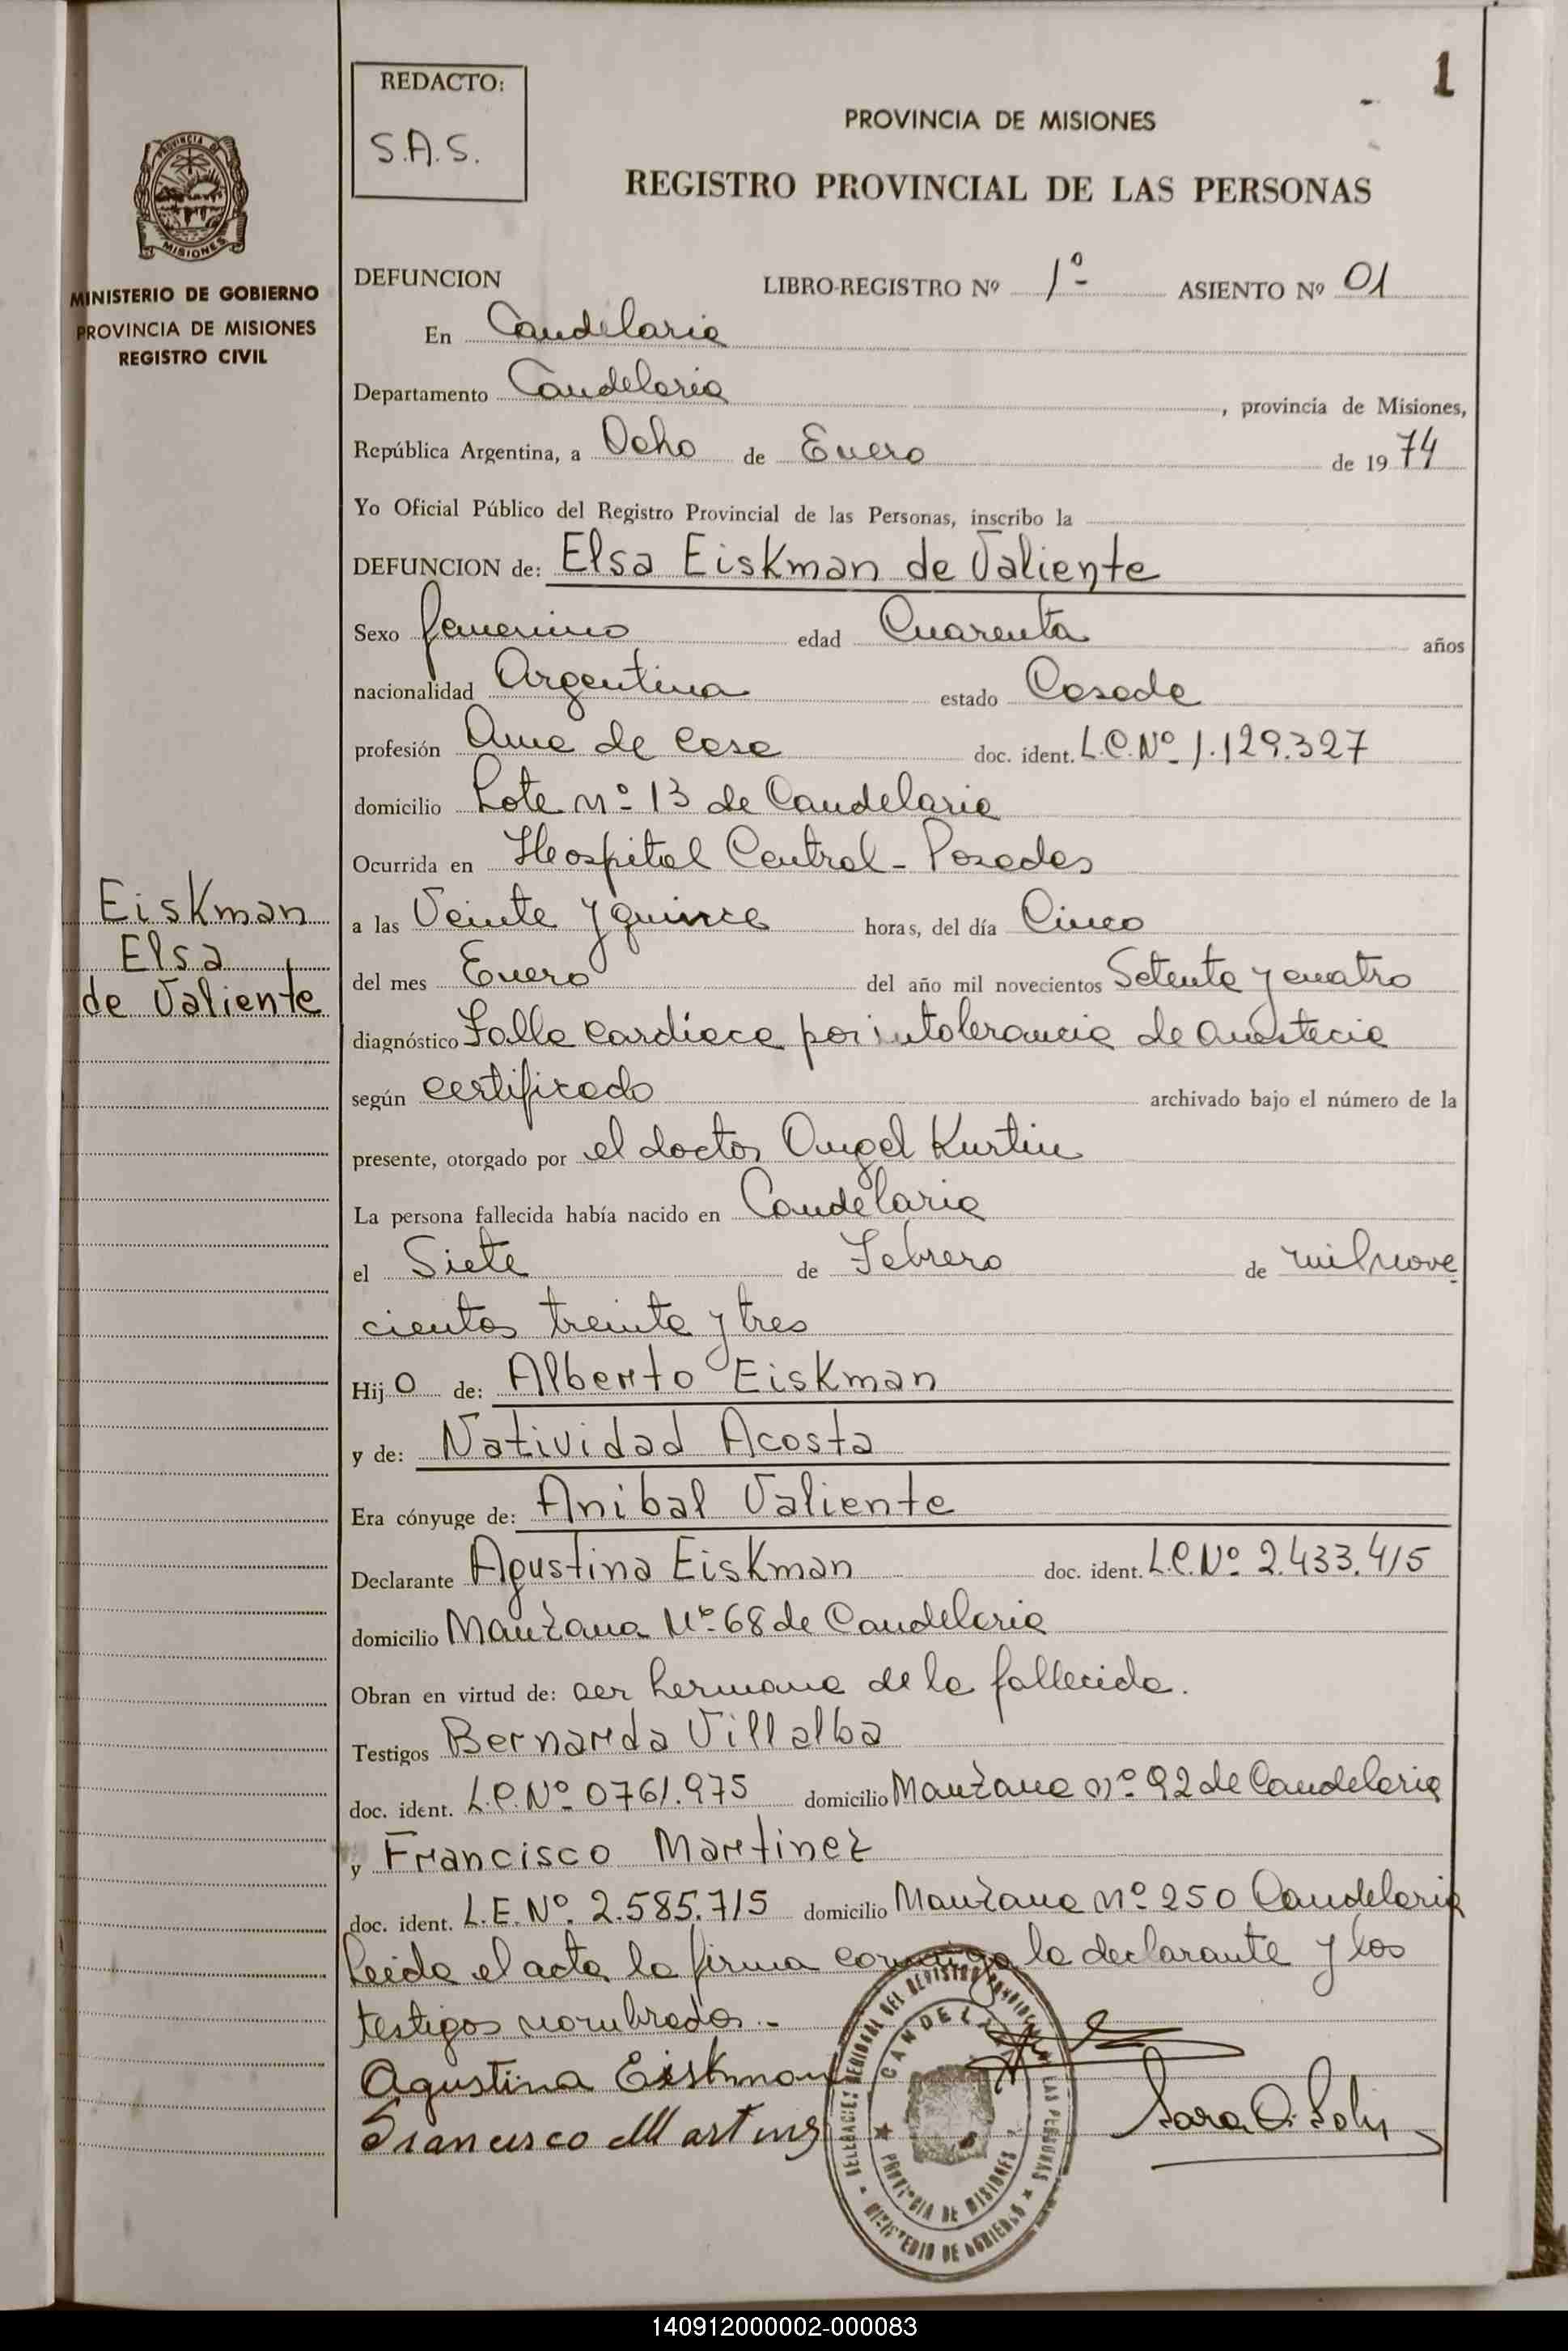 1
REDACTO:
S.A.S.
PROVINCIA DE MISIONES
REGISTRO PROVINCIAL DE LAS PERSONAS
PROVINCIA DE
MISIONES
MINISTERIO DE GOBIERNO
PROVINCIA DE MISIONES
REGISTRO CIVIL
DEFUNCION LIBRO-REGISTRO Nº 1º ASIENTO Nº 01
En Candelaria
Departamento Candelaria, provincia de Misiones,
República Argentina, a Ocho de Enero de 1974
Yo Oficial Público del Registro Provincial de las Personas, inscribo la
DEFUNCION de: Elsa Eiskman de Valiente
Sexo femenino edad Cuarenta años
nacionalidad Argentina estado Casada
profesión Ama de casa doc. ident. L.C. Nº 1.129.327
domicilio Lote nº 13 de Candelaria
Ocurrida en Hospital Central - Posadas
Eiskman
Elsa
de Valiente
a las Veinte y quince horas, del día Cinco
del mes Enero del año mil novecientos Setenta y cuatro
diagnóstico Falla cardíaca por intolerancia de anestecia
según certificado archivado bajo el número de la
presente, otorgado por el doctor Angel Kurtin
La persona fallecida había nacido en Candelaria
el Siete de Febrero de mil nove
cientos treinta y tres
Hij o de: Alberto Eiskman
y de: Natividad Acosta
Era cónyuge de: Anibal Valiente
Declarante Agustina Eiskman doc. ident. L.C. Nº 2.433.415
domicilio Manzana Nº 68 de Candelaria
Obran en virtud de: ser hermana de la fallecida.
Testigos Bernarda Villalba
doc. ident. L.C. Nº 0761.975 domicilio Manzana nº 92 de Candelaria
y Francisco Martinez
doc. ident. L.E. Nº. 2.585.715 domicilio Manzana nº 250 Candelaria
Leida el acta la firma conmigo la declarante y los
testigos nombrados.-
Agustina Eiskman
Francisco Martinez
Sara O. Solis
PROVINCIA DE MISIONES
MINISTERIO DE GOBIERNO
140912000002-000083